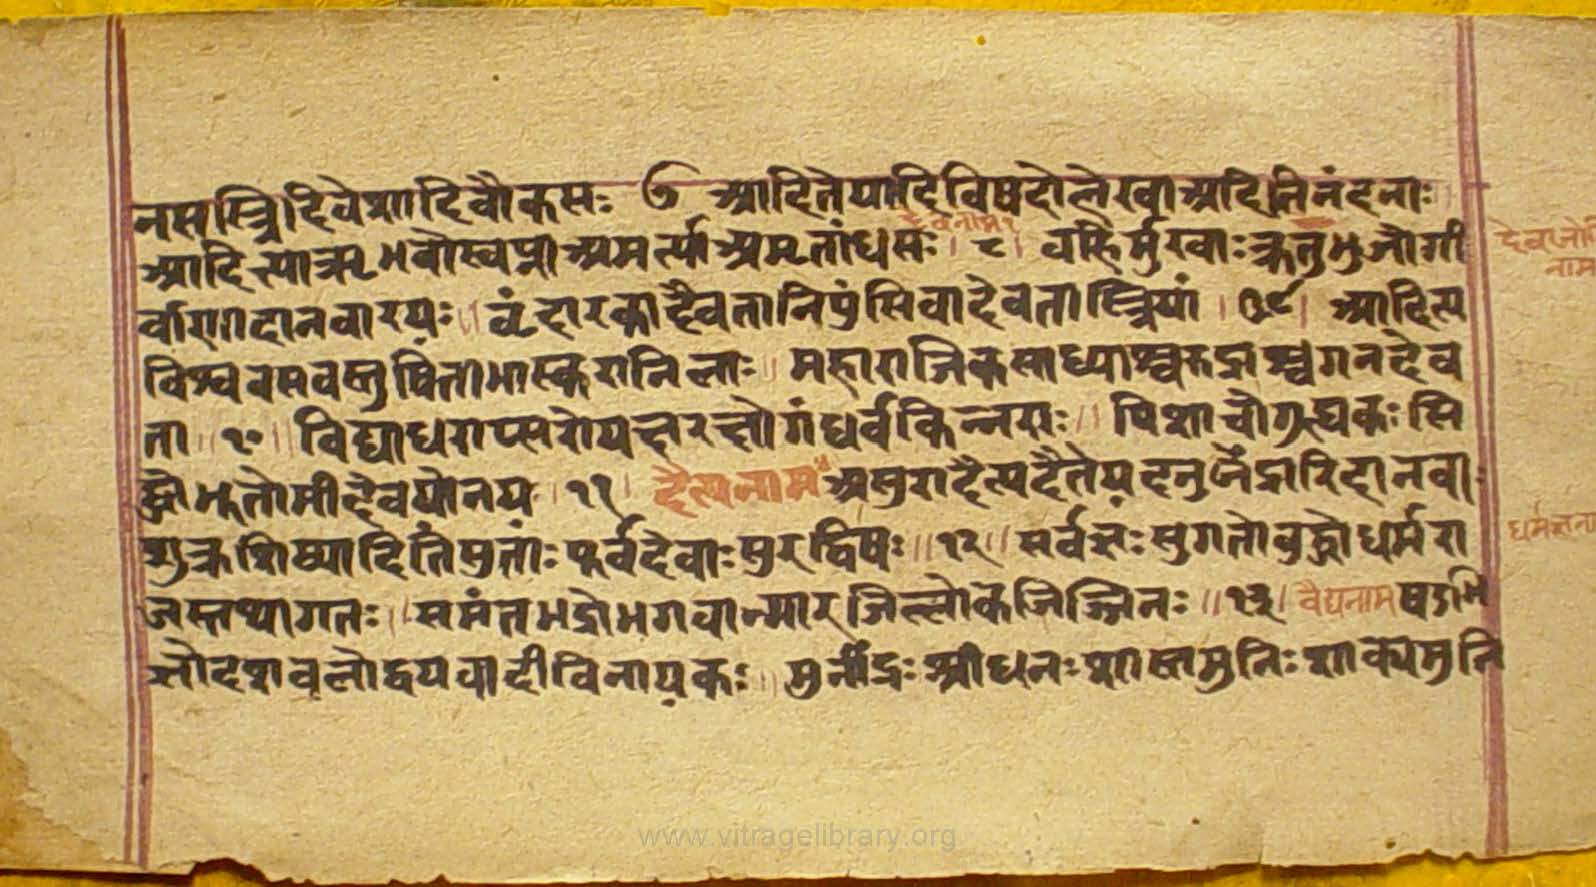 नसस्त्रिदिवेशादिवौकसः ७ आदितेयादिविषदोलेखाअदितिनंदनाः
आदित्याऋभवोस्वप्नाअमर्त्याअमृतांधसः । ८ । वर्हिर्मुखाःक्रतुभुजोगी
र्वाणादानवारयः ॥ वृंदारकादैवतानिपुंसिवादेवतास्त्रियां । ९ । आदित्य
विश्ववसवस्तुषिताभास्करानिलाः ॥ महाराजिकसाध्याश्चरुद्राश्चगनदेव
ता ॥ १० ॥ विद्याधराप्सरोयक्षरक्षोगंधर्वकिन्नराः ॥ पिशाचोगुह्यकः सि
द्धोभूतोमीदेवयोनय । ११ । दैत्यनाम असुरादैत्यदैतेयदनुजेंद्रारिदानवाः
शुक्रशिष्यादितिसुताः पूर्वदेवाः सुरद्विषः ॥ १२ ॥ सर्वज्ञः सुगतोबुद्धोधर्मरा
जस्तथागतः । समंतभद्रोभगवान्मारजिल्लोकजिज्जिनः ॥ १३ । वैद्यनाम षडभि
ज्ञोदशवलोद्वयवादीविनायकः ॥ मुनींद्रः श्रीघनः शास्तामुनिः शाक्यमुनि
देवनाम
नाम
www.vitragelibrary.org